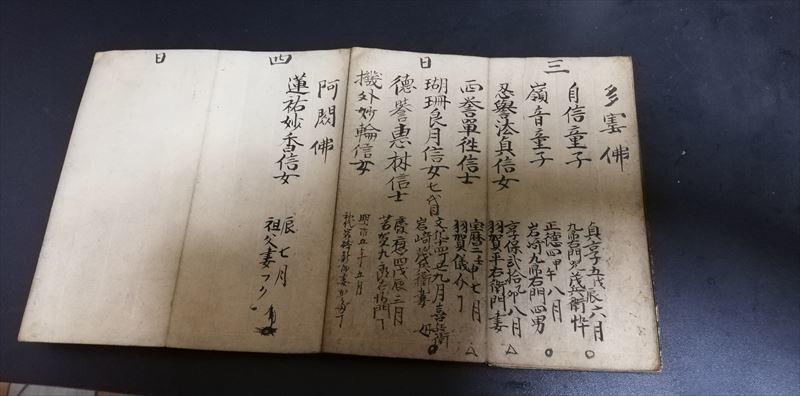 三
日
多寶佛
自信童子
貞享五戊辰六月
九郎右門兄茂兵衛忰
嶺音童子
正徳四甲午八月
岩崎九郎右門四男
忍譽法貞信女
享保弐拾乙卯八月
羽賀平右衛門妻
西誉單性信士
宝暦二壬申七月
羽賀儀介
瑚珊良月信女
七代目
文化十四丑九月喜兵衛
岩崎
德誉惠林信士
慶應四戊辰三月
機外妙輪信女
明治五
五月
四
日
阿閦佛
蓮祐妙香信女
辰七月
祖父妻フク